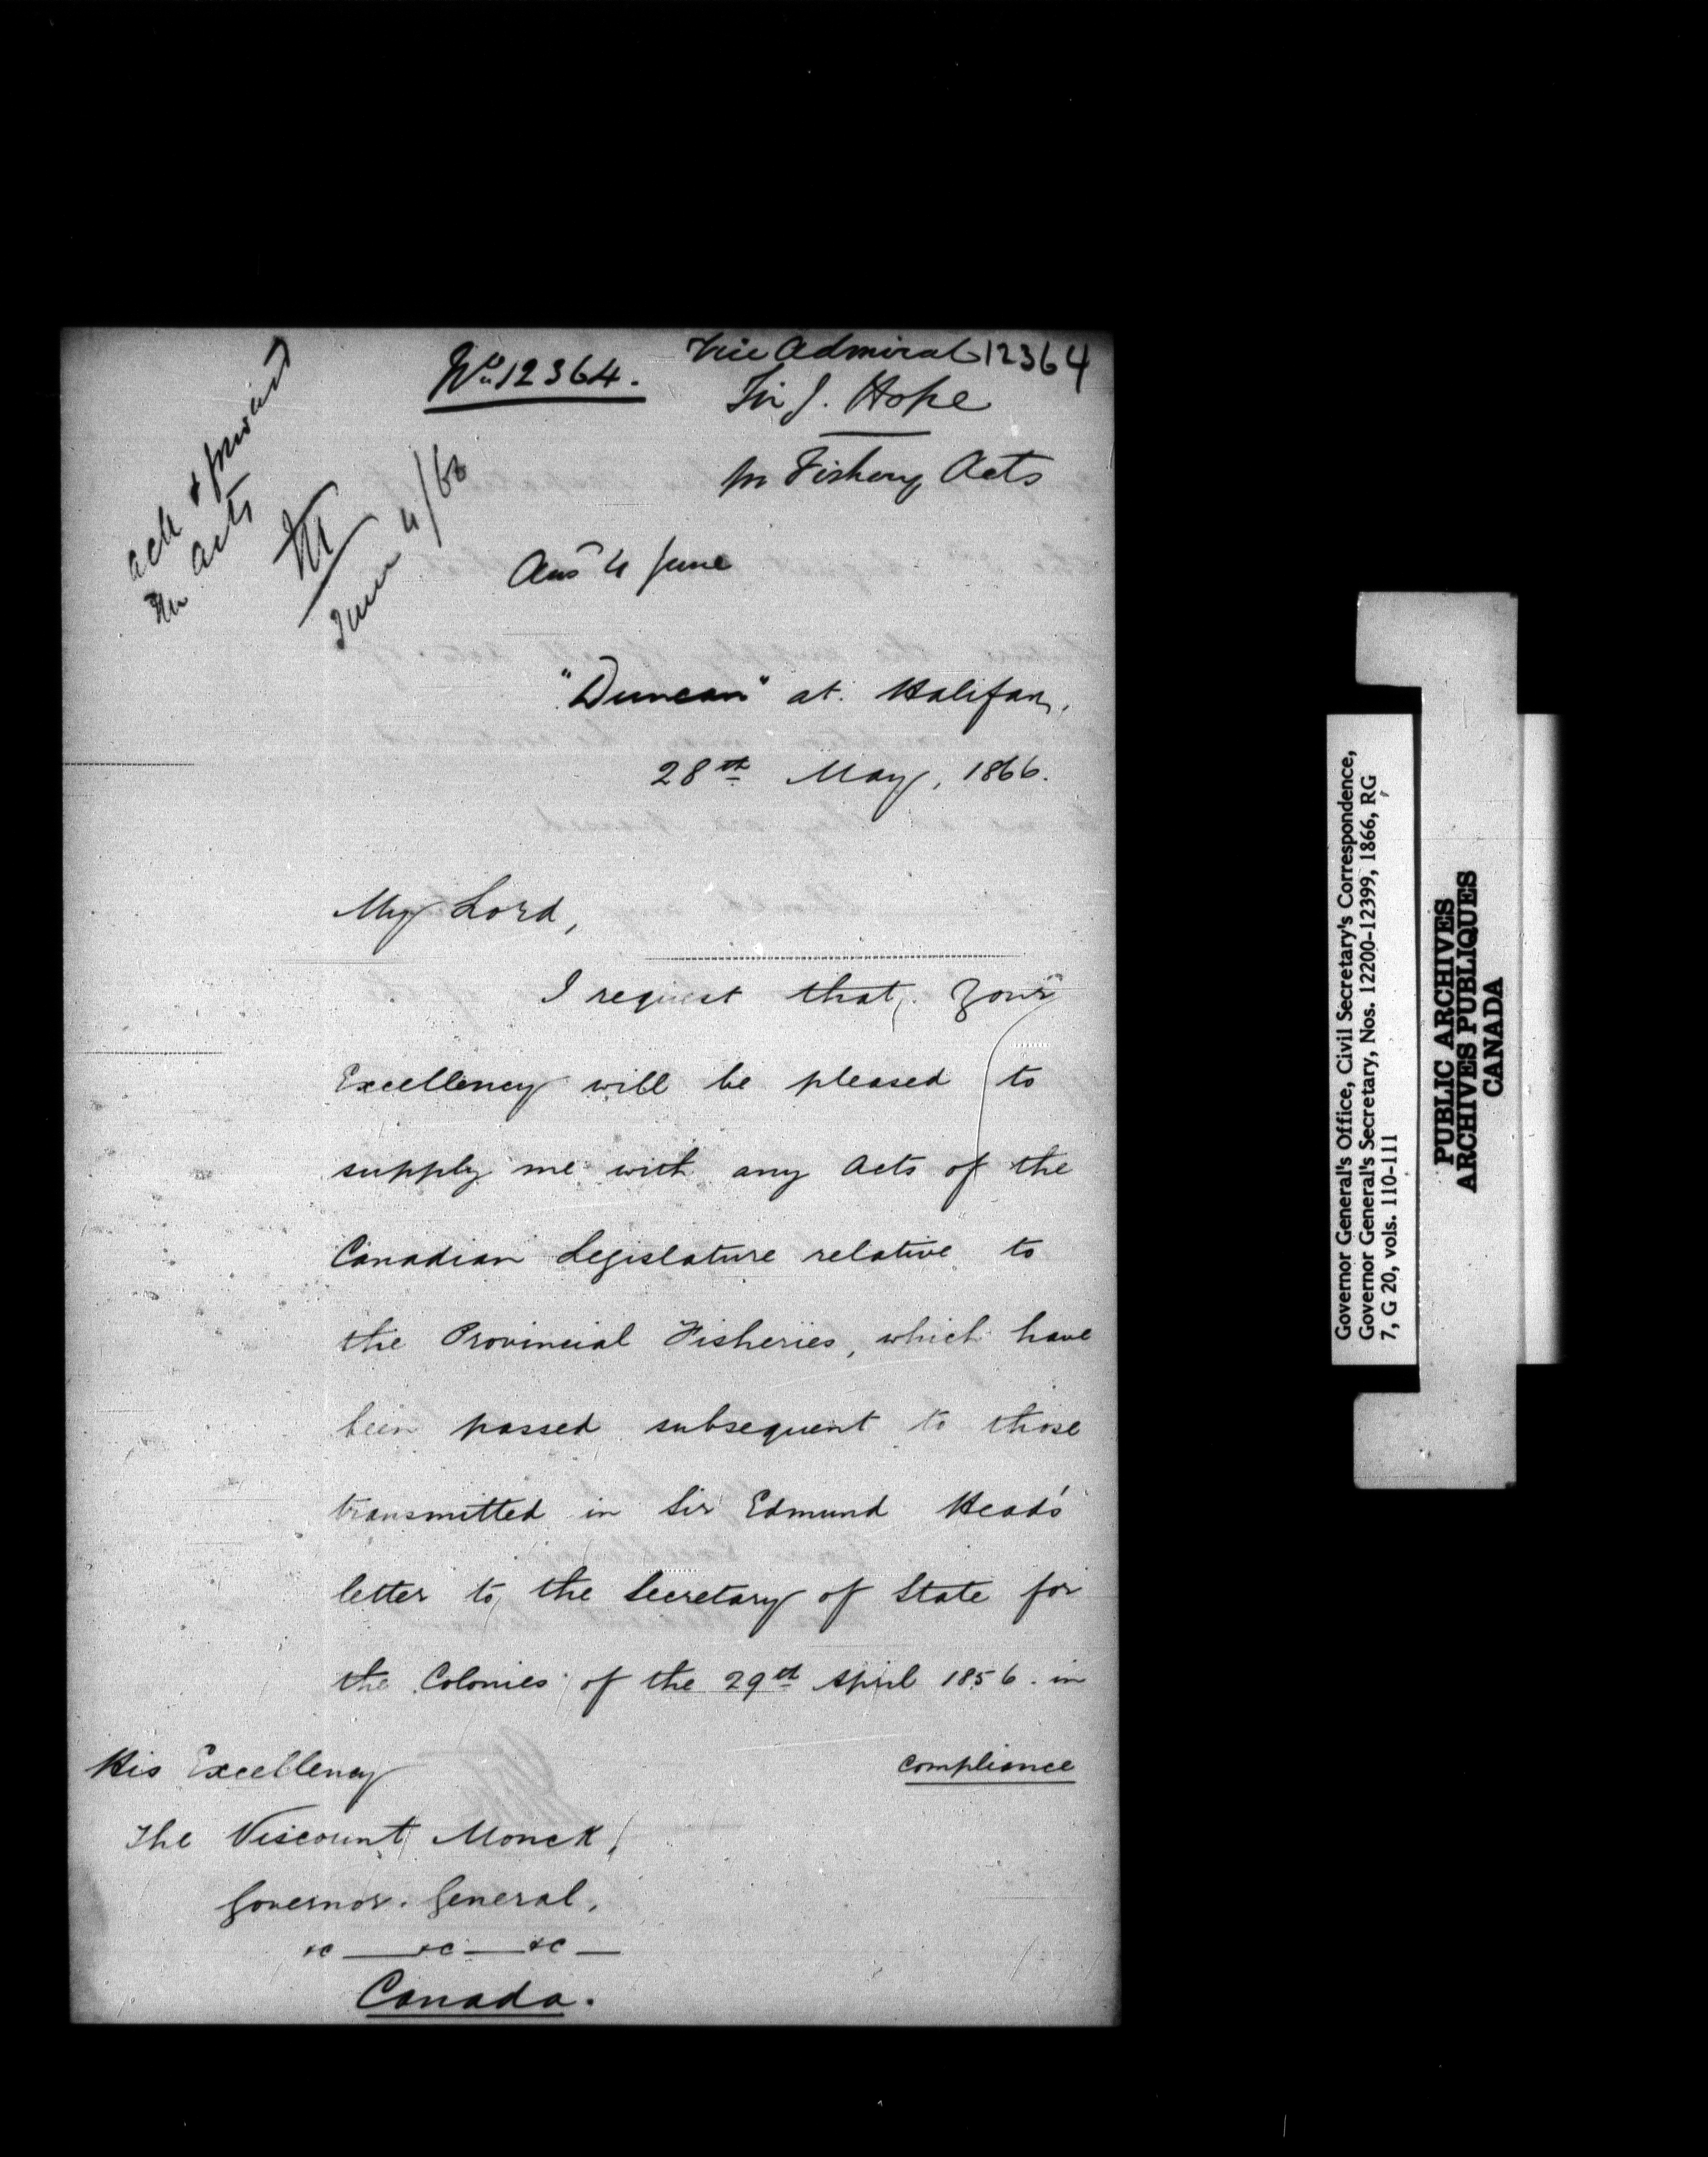 No. 12364.
Vice Admiral 12364
Sir J. Hope
for Fishery Acts
ack & forward
the acts
M
June 4/66
Ansd 4 June
"Duncan" at Halifax,
28th May, 1866.
My Lord,
I request that Your
Excellency will be pleased to
supply me with any Acts of the
Canadian Legislature relative to
the Provincial Fisheries, which have
been passed subsequent to those
transmitted in Sir Edmund Head's
letter to the Secretary of State for
the Colonies of the 29th April 1856. in
compliance
His Excellency
The Viscount Monck,
Governor. General,
&c — &c — &c —
Canada.
Governor General's Office, Civil Secretary's Correspondence,
Governor General's Secretary, Nos. 12200-12399, 1866, RG
7, G 20, vols. 110-111
PUBLIC ARCHIVES
ARCHIVES PUBLIQUES
CANADA